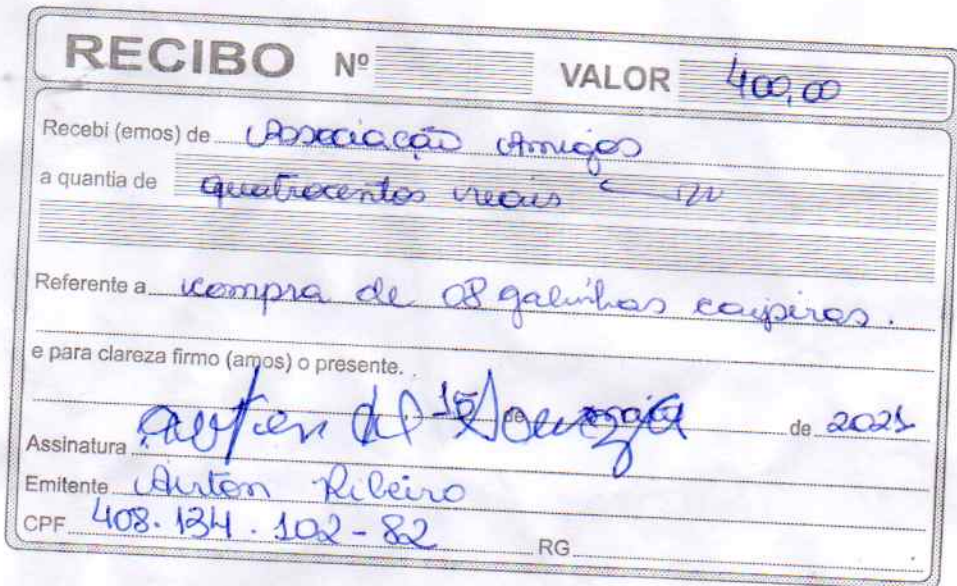 RECIBO Nº VALOR 400,00
Recebi (emos) de Associação Amigos
a quantia de quatrocentos reais
Referente a compra de 08 galinhas caipiras.
e para clareza firmo (amos) o presente.
15 de de 2021
Assinatura
Emitente Airton Ribeiro
CPF 408.134.102-82 RG